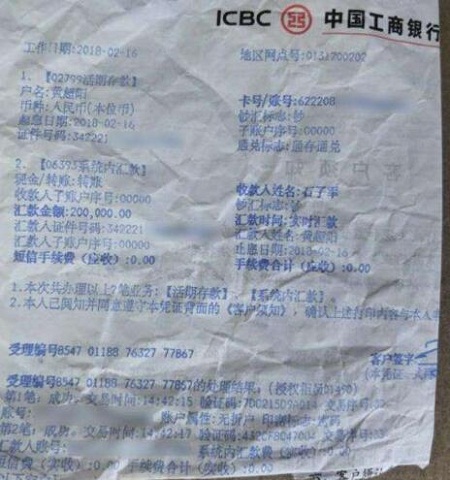 ICBC 中国工商银行
工作日期:2018-02-16 地区网点号:0131700202
1、【02799活期存款】
户名:黄超阳 卡号/账号:622208
币种:人民币(本位币) 钞汇标志:钞
起息日期:2018-02-16 子账户序号:00000
证件号码:342221 通兑标志:通存通兑
2、【06393系统内汇款】
现金/转账:转账 收款人姓名:石了军
收款人子账户序号:00000 钞汇标志:钞
汇款金额:200,000.00 汇款时间:实时汇款
汇款人证件号码:342221 汇款人姓名:黄超阳
汇款人子账户序号:00000 止息日期:2018-02-16
短信手续费(应收):0.00 手续费合计(应收):0.00
1.本次共办理以上2笔业务:【活期存款】、【系统内汇款】
2.本人已阅知并同意遵守本凭证背面的《客户须知》,确认上述打印内容与本人
受理编号8547 01188 76327 77867
客户签字
受理编号8547 01188 76327 77857的处理结果:(授权柜员
第1笔:成功。交易时间:14:42:15 验证码: 交易序号:
账号: 账户属性:无折户 印密标志:密码
第2笔:成功。交易时间:14:42:17 验证码:432CF8D47004 交易序号:
汇款人账号: 系统内汇款费(实收):0.00
短信费(实收):0.00 手续费合计(实收):0.00
以下空白